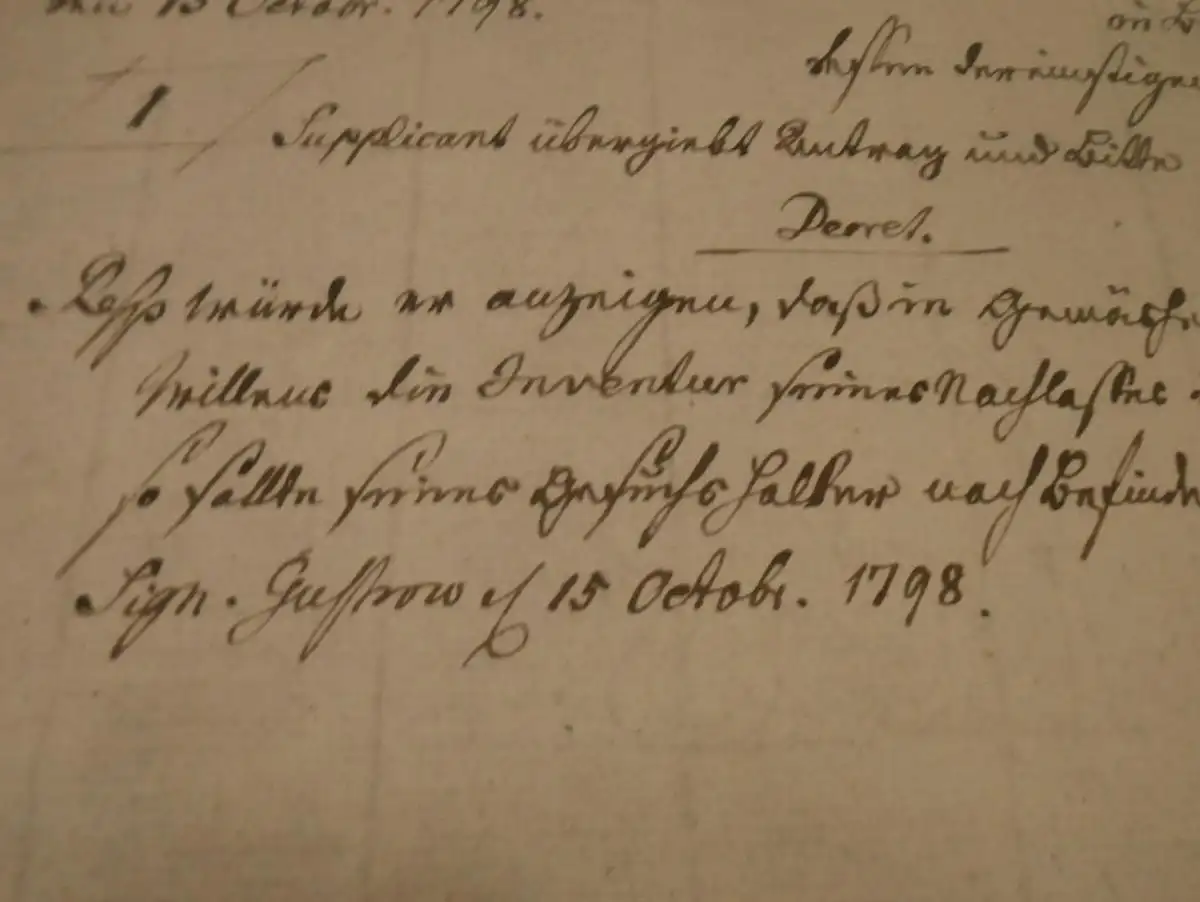 den 15 Octobr. 1798.
in
dessen dereinstigen
1
Supplicant übergiebt Antrag und Bitte
Decret.
würde er anzeigen, daß in
Willens die Inventur seines Nachlasses
so sollte seines Gesuchs halber nach Befinde
Sign. Gustrow d 15 Octobr. 1798.